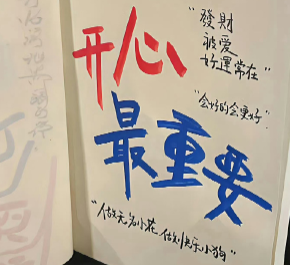 开心
最重要
"發財
被爱
好運常在"
"会好的会更好"
"做无名小花 做快乐小狗"